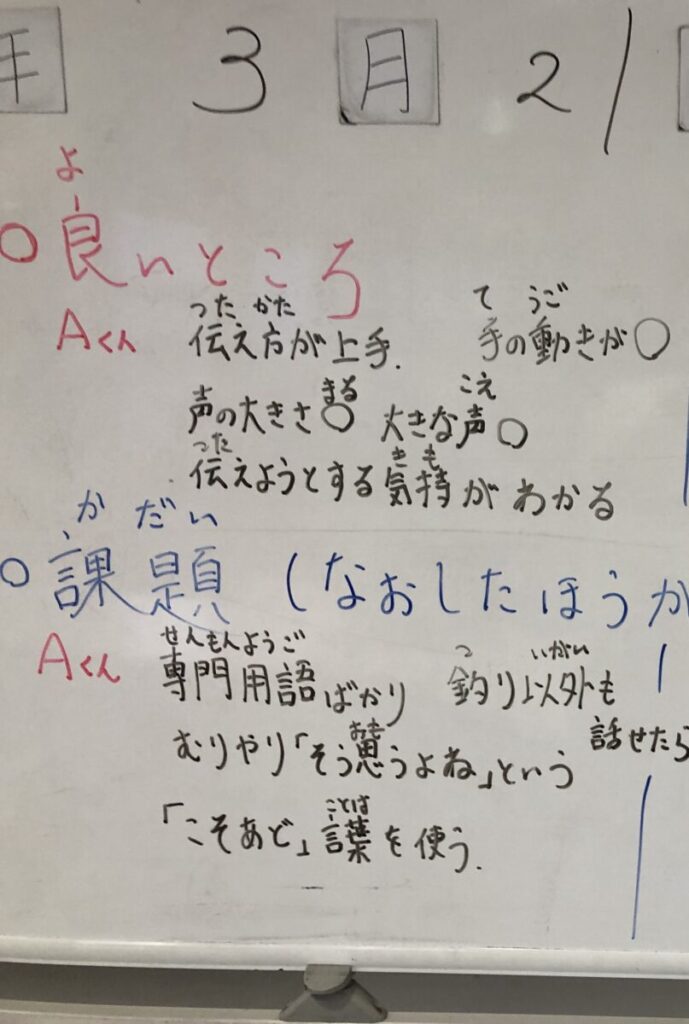 年 3 月 21
よ
○ 良いところ
つた かた て うご
Aくん 伝え方が上手. 手の動きが○
まる こえ
声の大きさ○ 大きな声○
つた き も
伝えようとする気持がわかる
か だい
○ 課題 (なおしたほうが
せんもんようご つ いがい
Aくん 専門用語ばかり 釣り以外も
話せたら
おも
むりやり「そう思うよね」という
ことば
「こそあど」言葉を使う.